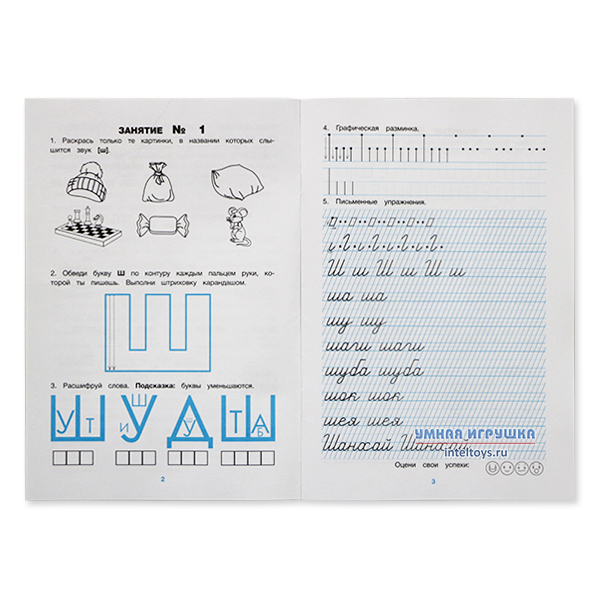 ЗАНЯТИЕ № 1
1. Раскрась только те картинки, в названии которых слы-
шится звук [ш].
2. Обведи букву Ш по контуру каждым пальцем руки, ко-
торой ты пишешь. Выполни штриховку карандашом.
Ш
3. Расшифруй слова. Подсказка: буквы уменьшаются.
Ш У Т У Ш И Д У Ш Ш Т А Б
2
4. Графическая разминка.
5. Письменные упражнения.
Ш ш Ш ш Ш ш
ша ша
шу шу
шаги шаги
шуба шуба
шок шок
шея шея
Шанхай Шанхай
УМНАЯ ИГРУШКА
inteltoys.ru
Оцени свои успехи:
3